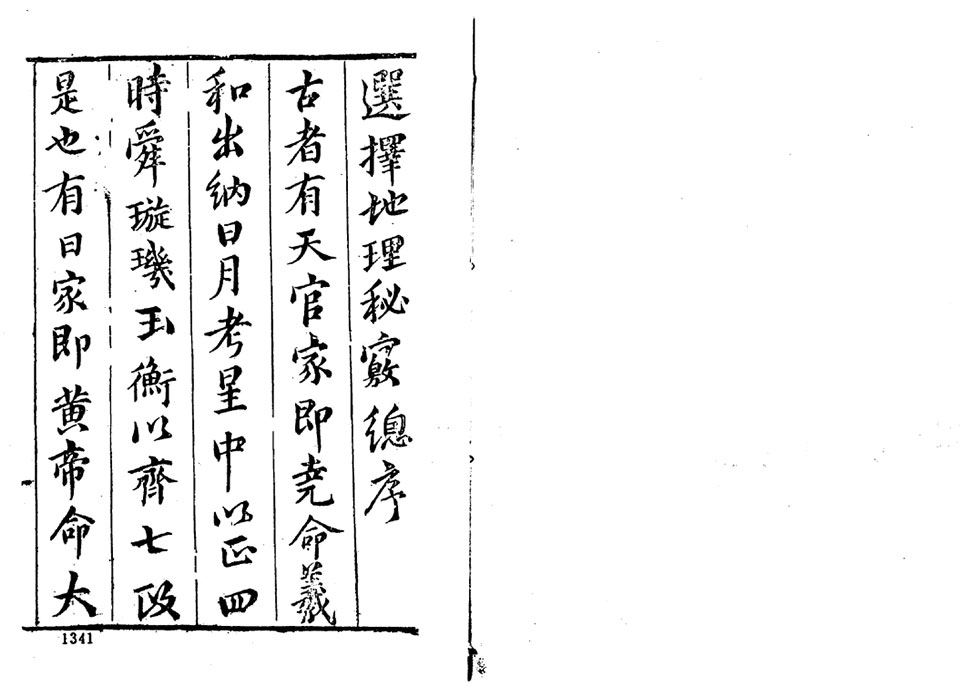 選擇地理秘竅總序
古者有天官家即堯命羲
和出納日月考星中以正四
時舜璇璣玉衡以齊七政
是也有日家即黄帝命大
1341